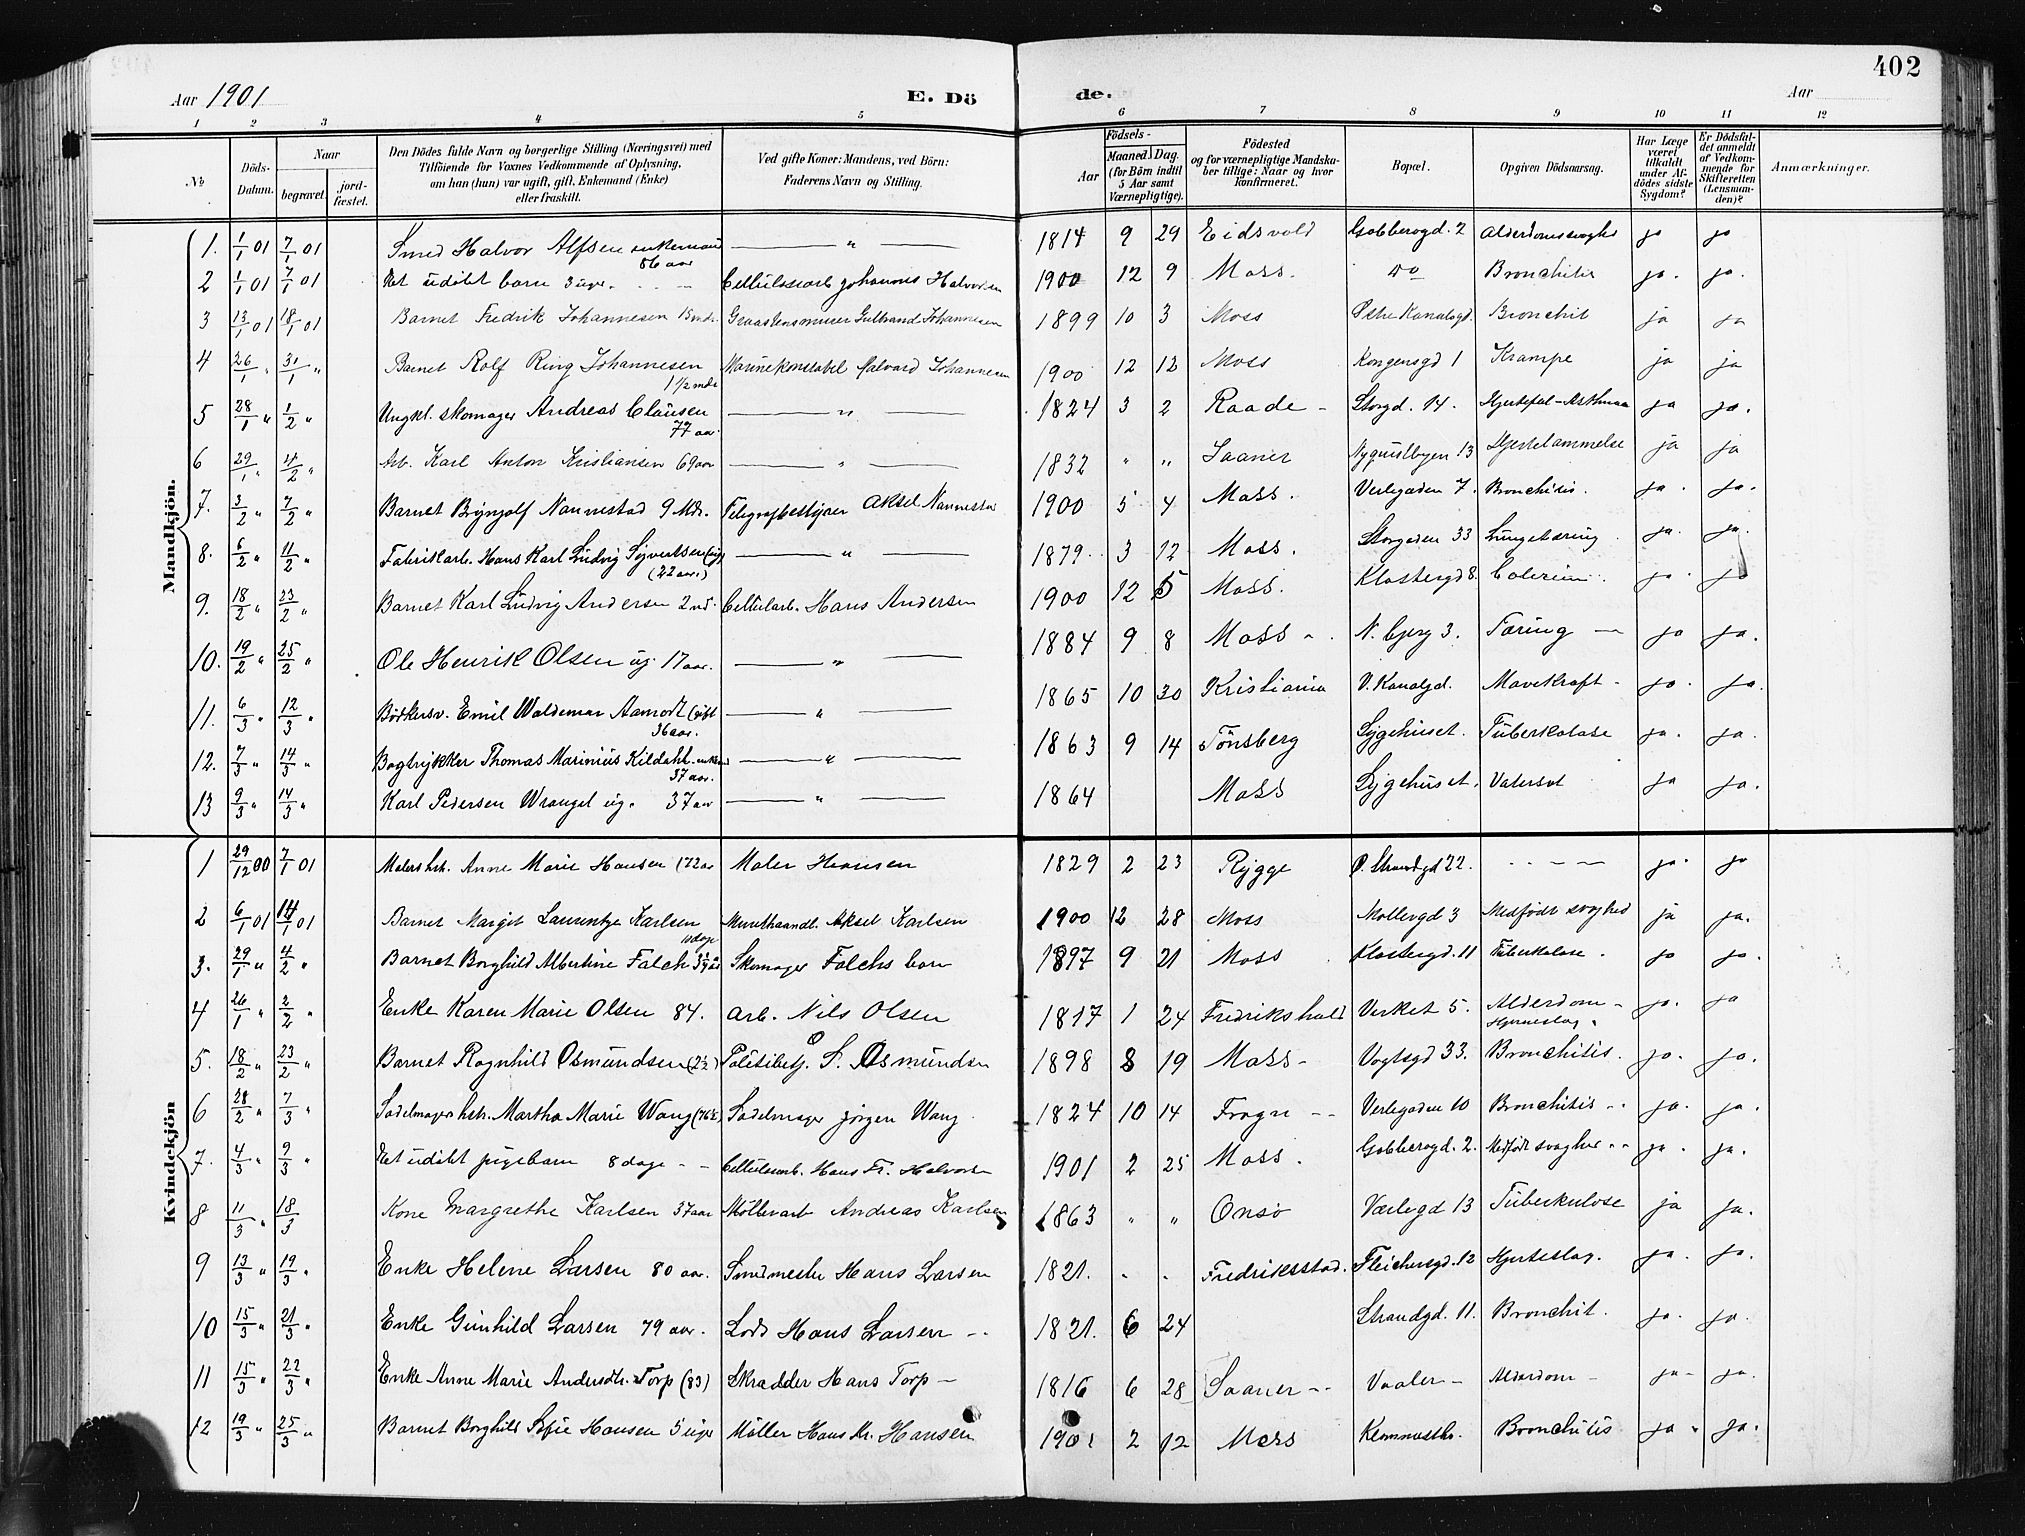 402
Aar 1901
E. Dö
de.
Aar
1 2 3 4 5 6 7 8 9 10 11 12
No.
Döds-Datum.
Naar
begravet.
jord-fæstet.
Den Dödes fulde Navn og borgerlige Stilling (Næringsvei) med
Tilföiende for Voxnes Vedkommende af Oplysning,
om han (hun) var ugift, gift, Enkemand (Enke)
eller fraskilt.
Ved gifte Koner: Mandens, ved Börn:
Faderens Navn og Stilling.
Födsels-
Aar
Maaned. Dag.
(for Börn indtil
5 Aar samt
Værnepligtige).
Födested
og for værnepligtige Mandska-
ber tillige: Naar og hvor
konfirmeret.
Bopæl.
Opgiven Dödsaarsag.
Har Læge
været
tilkaldt
under Af-
dödes sidste
Sygdom?
Er Dödsfal-
det anmeldt
af Vedkom-
mende for
Skifteretten
(Lensman-
den)?
Anmærkninger.
Mandkjön.
1. 1/1 01 7/1 01 Smed Halvor Alfsen enkemand 86 aar — " — 1814 9 29 Eidsvold Gobberogd. 2 Alderdomssvaghed ja ja
2 1/1 01 7/1 01 Et udöbt barn 3 uger. Cellulosearb Johannes Halvorsen 1900 12 9 Moss. do Bronchitis ja. ja.
3 13/1 01 18/1 01 Barnet Fredrik Johannesen 15 mdr. Graastensmurer Gulbrand Johannesen 1899 10 3 Moss Østre Kanalgd. Bronchit ja ja
4 26/1 " 31/1 " Barnet Rolf Ring Johannesen 1 1/2 mdr Marinekonstabel Halvard Johannesen 1900 12 12 Moss Kongensgd 1 Krampe ja ja
5 28/1 " 1/2 " Ungkl. skomager Andreas Clausen 77 aar — " — 1824 3 2 Raade - Storgd. 14. Hjertefel-Asthma ja ja.
6 29/1 " 4/2 " Arb. Karl Anton Kristiansen 69 aar — " — 1832 " " Saaner Nyquistbyen 13 Hjertelammelse ja ja
7. 3/2 " 7/2 " Barnet Brynjolf Nannestad 9 Mdr. Telegrafbestyrer Aksel Nannestad 1900 5 4 Moss. Verlegaden 7. Bronchitis. ja. ja.
8. 6/2 " 11/2 " Fabrikarb. Hans Karl Ludvig Syvertsen (ug) (22 aar.) — " — 1879. 3 12 Moss. Storgaden 33 Lungetæring. ja. ja.
9. 18/2 " 23/2 " Barnet Karl Ludvig Andersen 2 md. Cellularb. Hans Andersen 1900 12 5 Moss. Klostergd 8. Colerine. ja. ja
10. 19/2 " 25/2 " Ole Henrik Olsen ug. 17 aar. — " — 1884 9 8 Moss -. N. bjerg 3. Tæring — ja ja.
11. 6/3 " 12/3 " Bødkersv. Emil Waldemar Aamodt (gift 36 aar. — " — 1865 10 30 Kristiania V. Kanalgd. Mavekræft - ja. ja.
12. 7/3 " 14/3 " Bogtrykker Thomas Marinius Kildahl. enkem. 37 aar. — " — 1863 9 14 Tönsberg Sygehuset. Tuberkolose ja. ja.
13 9/3 " 14/3 " Karl Pedersen Wrangel ug. 37 aar — " — 1864 Moss Sygehuset. Vatersot ja ja.
Kvindekjön
1 29/12 00 7/1 01 Malers hst. Anne Marie Hansen (72 aar Maler Hansen 1829 2 23 Rygge P. Strandgd 22. - - - - ja. ja
2 6/1 01 14/1 01 Barnet Margit Laurentze Karlsen 10 dage Murerhaandl. Aksel Karlsen 1900 12 28 Moss Mollergd 3 Medfödt svaghed ja ja.
3. 29/1 " 4/2 " Barnet Borghild Albertine Falch 3 1/2 aar Skomager Falchs barn 1897 9 21 Moss Klostergd. 11 Tuberkolose. ja ja.
4 26/1 " 2/2 " Enke Karen Marie Olsen 84. Arb. Nils Olsen 1817 1 24 Fredrikshald Verket 5. Alderdom - Hjerneslag. ja. ja
5. 18/2 " 23/2 " Barnet Ragnhild Osmundsen (2 1/2) Politibetj. S. Osmundsen 1898 8 19 Moss - Vogtsgd 33. Bronchitis. ja. ja.
6 28/2 " 7/3 " Sadelmager hst. Martha Marie Wang (76 1/2) Sadelmager Jörgen Wang. 1824 10 14 Frogn - - Verlegaden 10 Bronchitis -. ja. ja.
7. 4/3 " 9/3 " Et udöbt pigebarn 8 dage - - Cellulosearb. Hans Fr. Halvorsen 1901 2 25 Moss. Gobberogd. 2. Medfödt svaghed - - ja. ja.
8 11/3 " 18/3 Kone Margrethe Karlsen 37 aar Møllerarb Andreas Karlsen 1863 " " Onsø Værlegd 13 Tuberkulose ja ja.
9 13/3 " 19/3 " Enke Helene Larsen 80 aar. Smedmester Hans Larsen 1821. - - Fredriksstad. Fleichersgd. 12 Hjerteslag. ja. ja.
10 15/3 " 21/3 " Enke Gunhild Larsen 79 aar. Lods Hans Larsen -. 1821. 6 24 Strandgd. 11. Bronchit. ja. ja.
11 15/3 " 22/3 " Enke Anne Marie Andersdtr. Torp (83) Skradder Hans Torp - 1816 6 28 Saaner - - Vaaler - Alderdom - ja - ja.
12 19/3 " 25/3 " Barnet Borghild Sofie Hansen 5 uger Möller Hans Kr. Hansen 1901 2 12 Moss Bronchitis ja " ja.